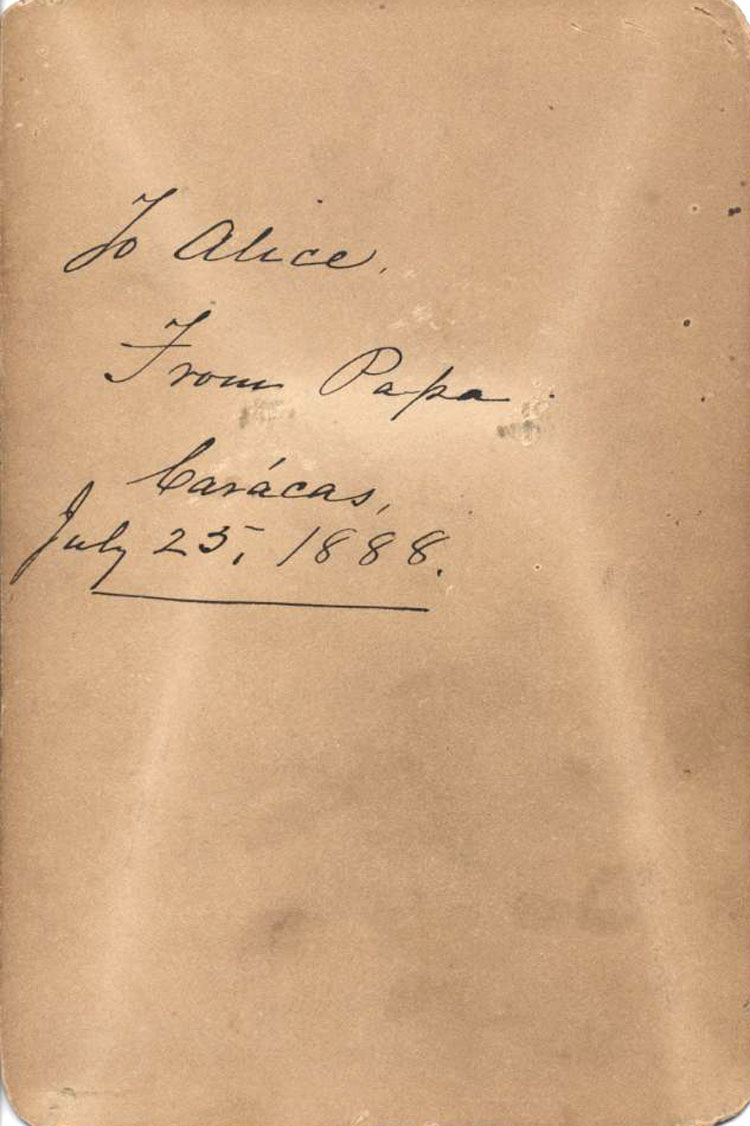 To Alice.
From Papa.
Carácas,
July 25, 1888.